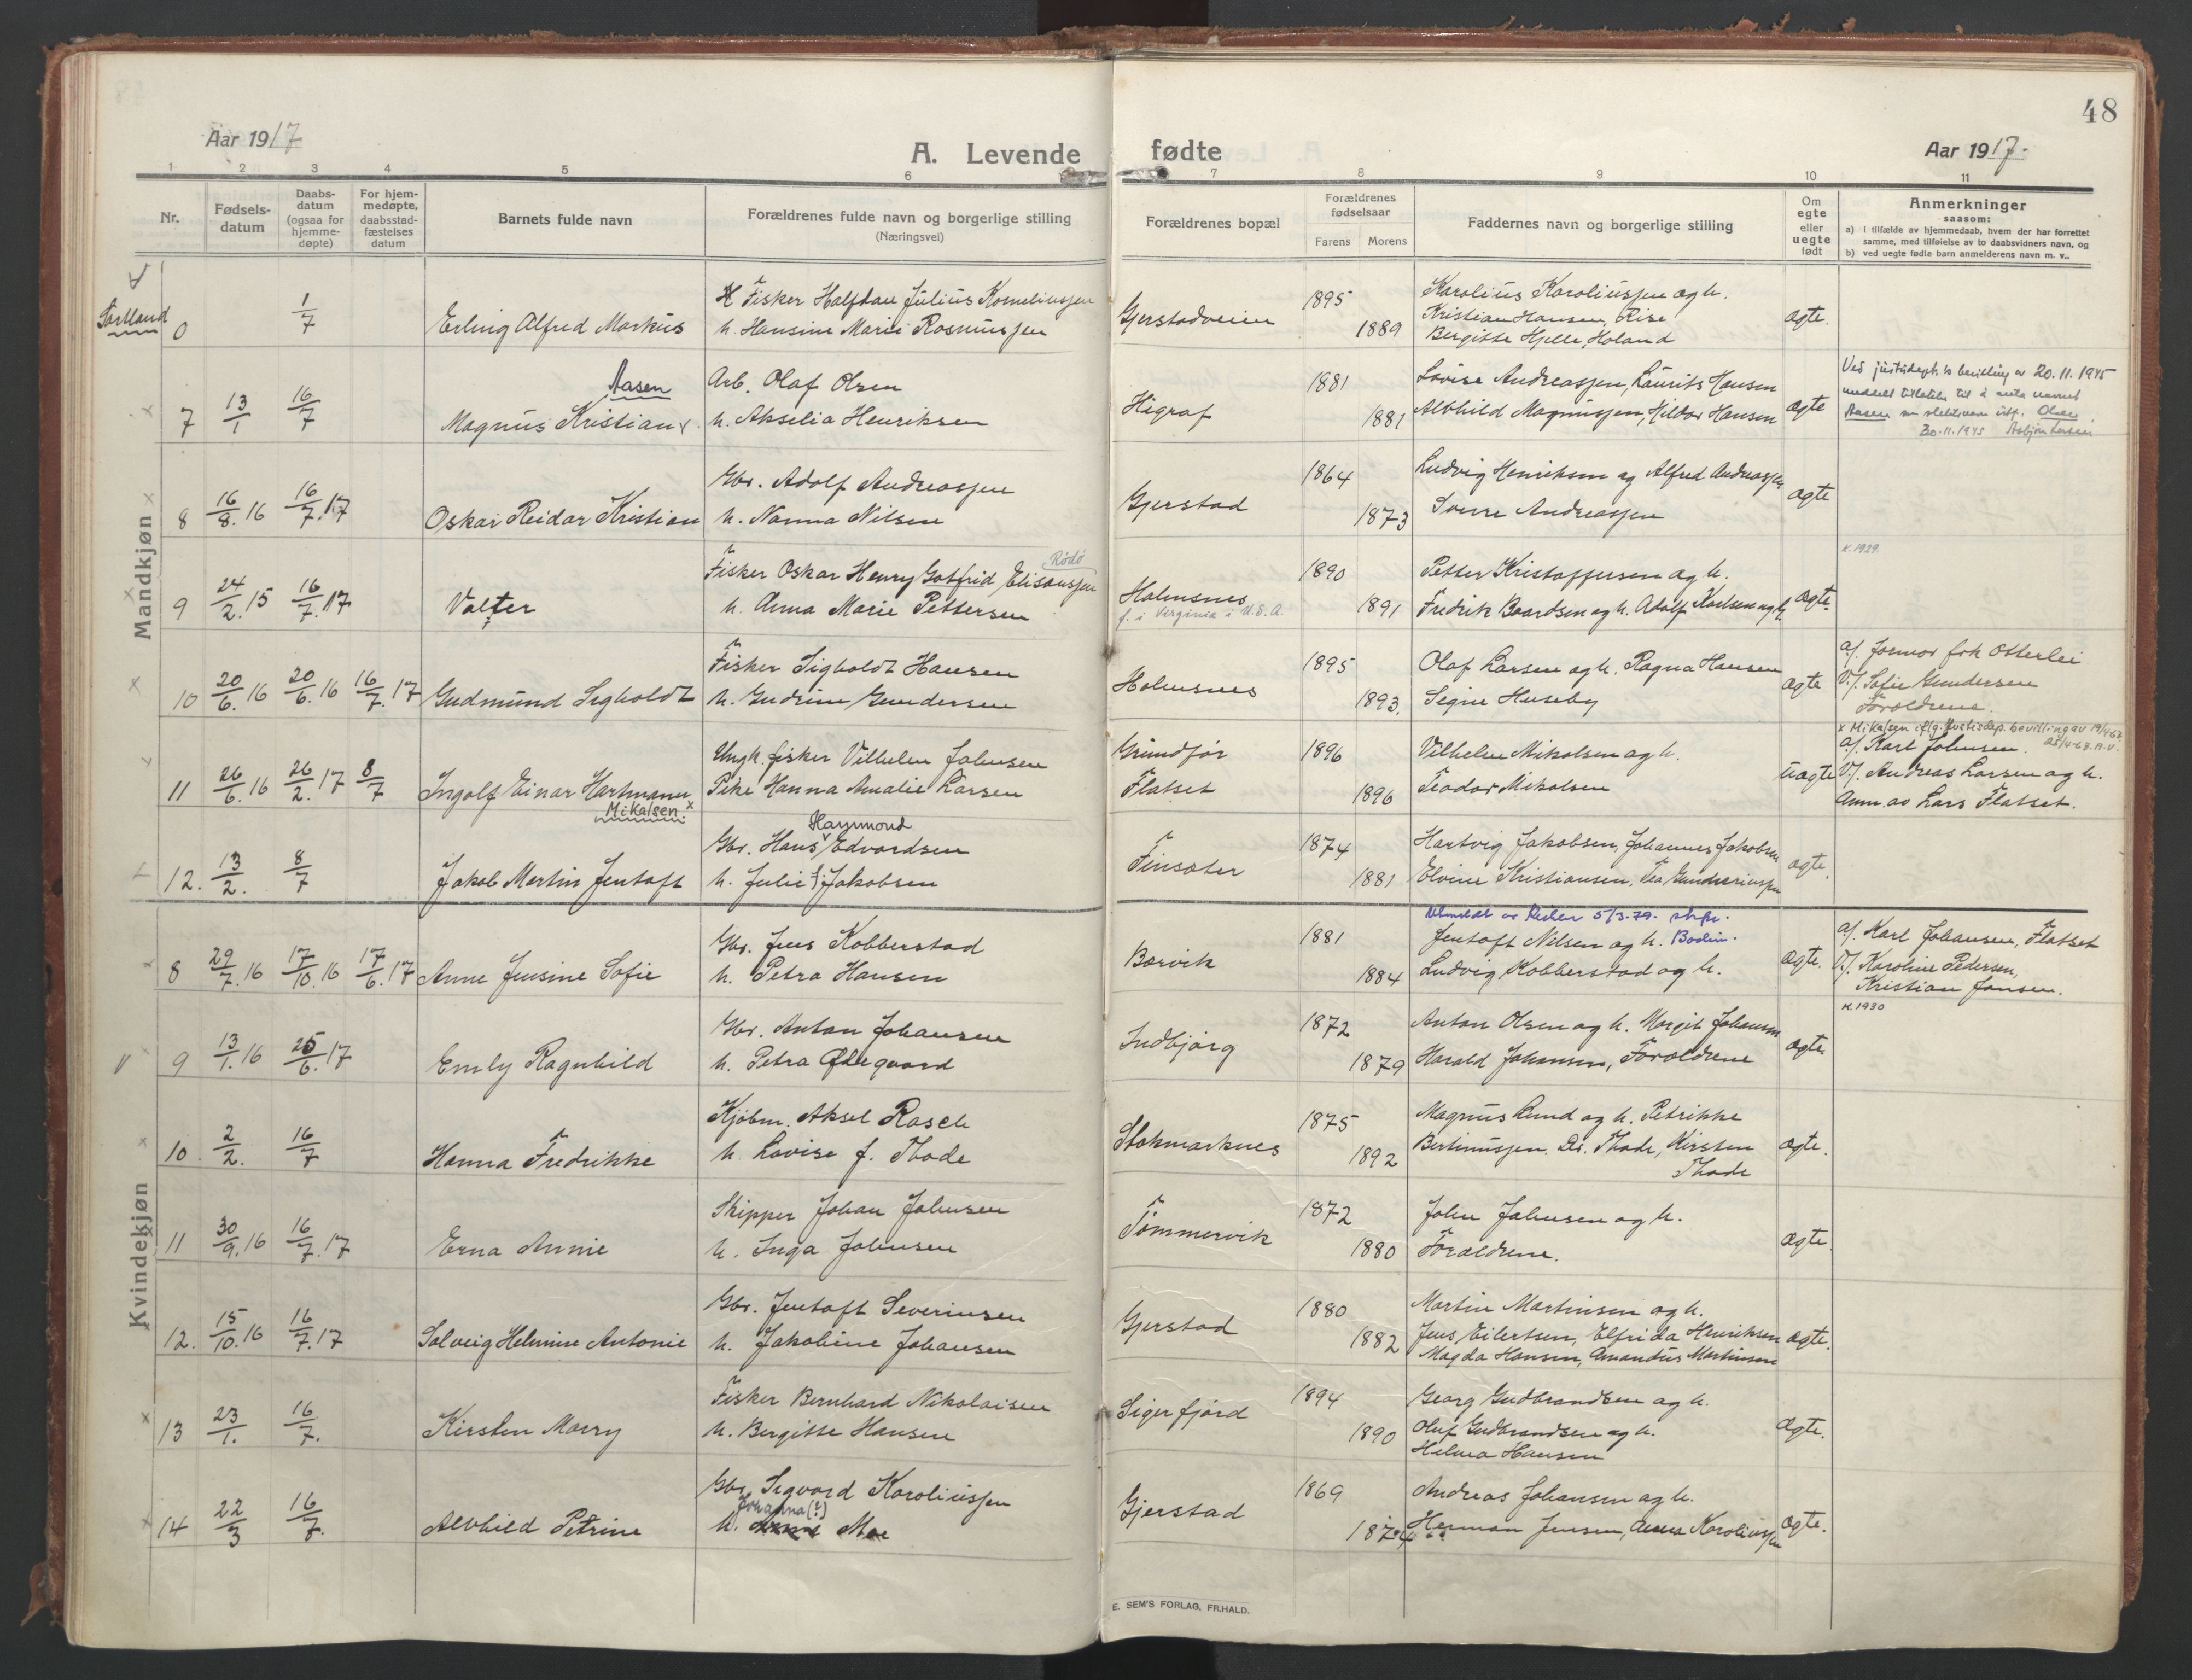 48
Aar 1917
A. Levende fødte
Aar 1917.
1 2 3 4 5 6 7 8 9 10 11
Nr.
Fødsels-
datum
Daabs-
datum
(ogsaa for
hjemme-
døpte)
For hjem-
medøpte,
daabsstad-
fæstelses
datum
Barnets fulde navn
Forældrenes fulde navn og borgerlige stilling
(Næringsvei)
Forældrenes bopæl
Forældrenes
fødselsaar
Farens Morens
Faddernes navn og borgerlige stilling
Om
egte
eller
uegte
født
Anmerkninger
saasom:
a) i tilfælde av hjemmedaab, hvem der har forrettet
samme, med tilføielse av to daabsvidners navn, og
b) ved uegte fødte barn anmelderens navn m. v..
Mandkjøn
Sortland
0 1/7 Erling Alfred Markus
Fisker Halfdan Julius Korneliussen
h. Hansine Marie Rasmussen
Gjerstadveien 1895 1889
Karolius Karoliussen og h.
Kristian Hansen, Rise
Bergitte Hjelle, Holand
ægte.
7 13/1 16/7 Magnus Kristian
Aasen
Arb. Olaf Olsen
h. Akselia Henriksen
Higraf 1881 1881
Lovise Andreassen, Laurits Hansen
Alvhild Magnussen, Hildor Hansen
ægte
Ved justisdept.s bevilling av 20.11.1945
meddelt tillatelse til å anta navnet
Aasen som slektsnavn istf. Olsen
20.11.1945
8 16/8.16 16/7.17 Oskar Reidar Kristian
Gbr. Adolf Andreassen
h. Nanna Nilsen
Gjerstad 1864 1873
Ludvig Henriksen og Alfred Andreassen
Sverre Andreassen
ægte
9 24/2.15 16/7.17 Valter
Fisker Oskar Henry Gotfrid Eliseussen
Rødø
h. Anna Marie Pettersen
Holmsnes
f. i Virginia i U.S.A.
1890 1891
Petter Kristoffersen og h.
Fredrik Baardsen og h. Adolf Karlsen og h.
ægte.
K. 1929.
10 20/6.16 20/6.16 16/7.17 Gudmund Sigholdt
Fisker Sigholdt Hansen
h. Gudrun Gundersen
Holmsnes 1895 1893.
Olaf Larsen og h. Ragna Hansen
Signe Huseby
ægte
a/. formor frk Otterlei
V/. Sofie Gundersen
Forældrene.
11 26/6.16 26/2.17 8/7 Ingolf Einar Hartmann x
Mikalsen
Ungk. fisker Vilhelm Johnsen
Pike Hanna Amalie Larsen
Grundfør
Flatset
1896 1896
Vilhelm Mikalsen og h.
Teodor Mikalsen
uægte
x Mikalsen iflg. Justisdep. bevilling av 19/4-67
a/. Karl Johnsen.
V/. Andreas Larsen og h.
Anm. av Lars Flatset.
12. 13/2. 8/7 Jakob Martin Jentoft
Gbr. Hans Edvardsen
Haymond
h. Julie Jakobsen
Finsæter 1874 1881
Hartvig Jakobsen, Johannes Jakobsen
Elvine Kristiansen, Tea Gunderiussen
ægte.
Kvindekjøn
8 29/7.16 17/10.16 17/6.17 Anne Jensine Sofie
Gbr. Jens Kobberstad
h. Petra Hansen
Børvik 1881 1884
Utmeldt av kirken 5/3-79.
Bodin.
Jentoft Nilsen og h.
Ludvig Kobberstad og h.
ægte.
a/. Karl Johansen, Flatset
V/. Karoline Pedersen,
Kristian Jansen.
9 13/1.16 25/6.17 Emly Ragnhild
Gbr. Anton Johansen
h. Petra Ødegaard
Indbjørg 1872 1879
Anton Olsen og h. Margit Johansen
Harald Johansen, Forældrene
ægte
K. 1930
10 2/2. 16/7 Hanna Fredrikke
Kjøbm. Aksel Rasch
h. Lovise f. Thode
Stokmarknes 1875 1892
Magnus Lund og h. Petrikke
Bertinussen. Thode, Kirsten
Thode
ægte.
11 30/9.16 16/7.17 Erna Annie
Skipper Johan Johnsen
h. Inga Johnsen
Tømmervik 1872 1880
John Johnsen og h.
Forældrene.
ægte.
12. 15/10.16 16/7.17 Solveig Helmine Antonie
Gbr. Jentoft Severinsen
h. Jakobine Johansen
Gjerstad 1880 1882
Martin Martinsen og h.
Jens Eilertsen, Elfrida Henriksen
Magda Hansen, Amandus Martinsen
ægte.
13 23/1. 16/7. Kirsten Maery
Fisker Bernhard Nikolaisen
h. Bergitte Hansen
Sigerfjord 1894 1890
Georg Gudbrandsen og h.
Oluf Gudbrandsen og h.
Helma Hansen
ægte.
14 22/3 16/8. Alvhild Petrine
Gbr. Sigvard Karoliussen
Johanna(?)
h. Moe
Gjerstad 1869 1874
Andreas Johansen og h.
Herman Jensen, Anna Karoliussen
ægte.
E. SEM'S FORLAG, FR.HALD.